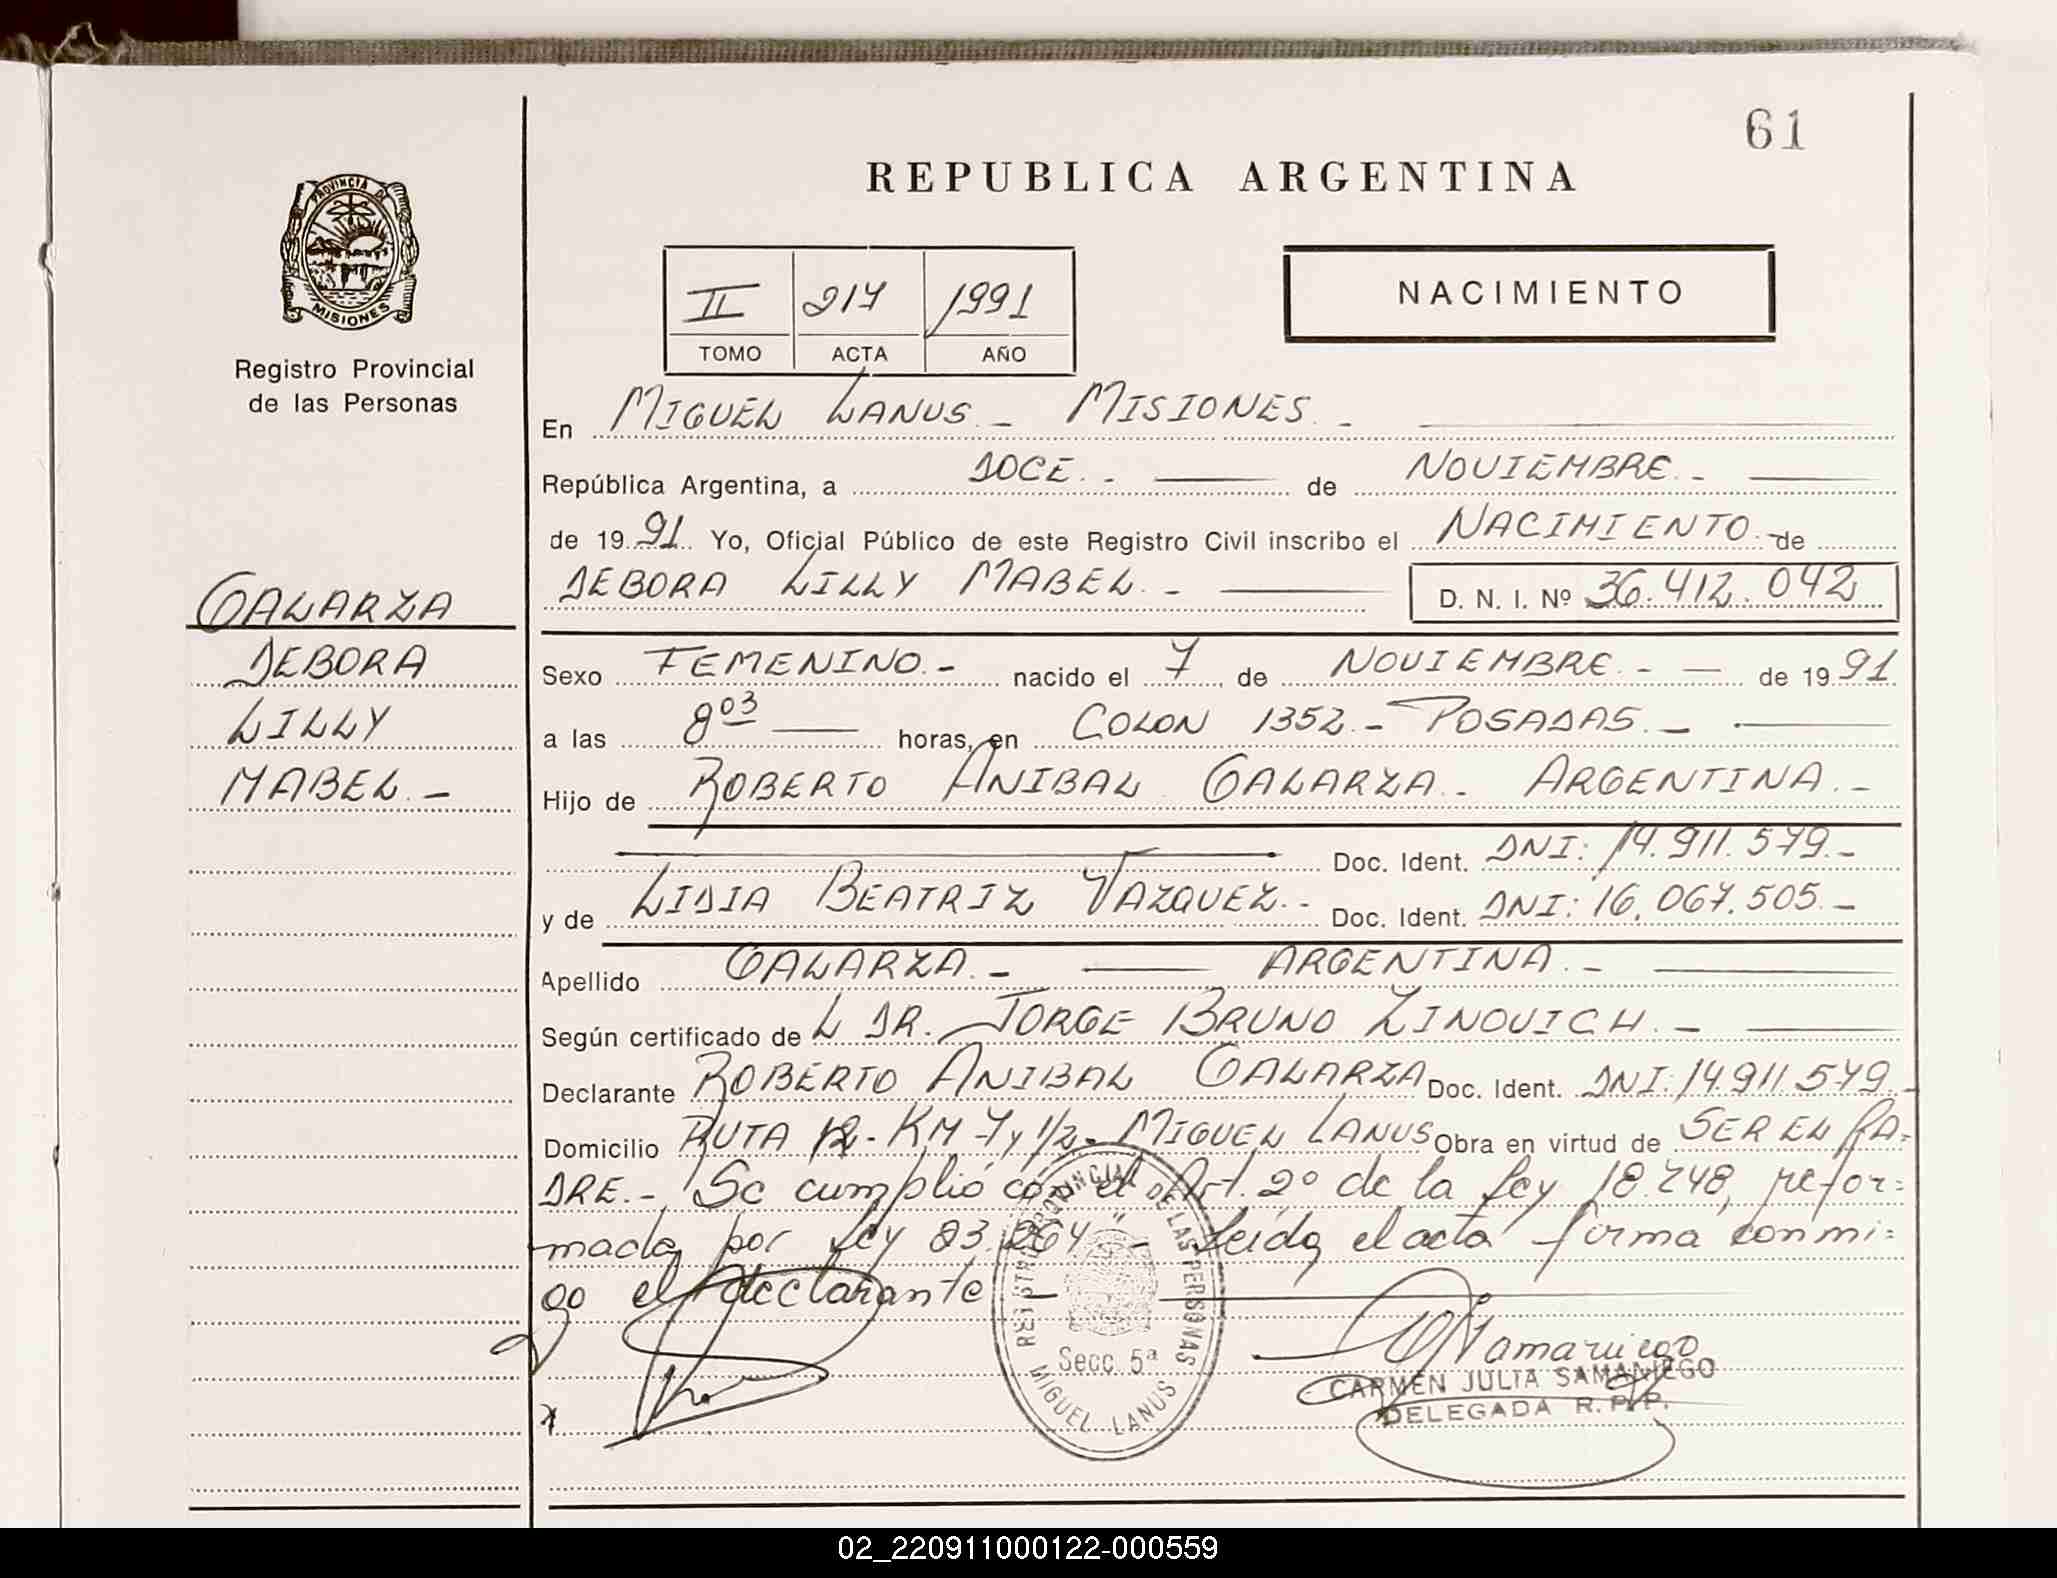 61
REPUBLICA ARGENTINA
PROVINCIA DE
MISIONES
Registro Provincial
de las Personas
II 217 1991
TOMO ACTA AÑO
NACIMIENTO
En MIGUEL LANUS.- MISIONES.-
República Argentina, a DOCE.- de NOVIEMBRE.-
de 1991 Yo, Oficial Público de este Registro Civil inscribo el NACIMIENTO.- de
DEBORA LILLY MABEL.- D. N. I. Nº 36.412.042
GALARZA
DEBORA
LILLY
MABEL.-
Sexo FEMENINO.- nacido el 7 de NOVIEMBRE.- - de 1991
a las 8 03 horas, en COLON 1352.- POSADAS.-
Hijo de ROBERTO ANIBAL GALARZA.- ARGENTINA.-
Doc. Ident. DNI: 14.911.579.-
y de LIDIA BEATRIZ VAZQUEZ.- Doc. Ident. DNI: 16.067.505.-
Apellido GALARZA.- ARGENTINA.-
Según certificado de L DR. JORGE BRUNO ZINOVICH.-
Declarante ROBERTO ANIBAL GALARZA Doc. Ident. DNI: 14.911.579.-
Domicilio RUTA 12 - KM 7 y 1/2 - MIGUEL LANUS Obra en virtud de SER EL PA=
DRE.- Se cumplió con el Art. 2º de la Ley 18.248, refor=
mada por Ley 23.264 - Leída el acta firma conmi=
go el declarante -
REGISTRO PROVINCIAL DE LAS PERSONAS
Secc. 5ª
MIGUEL LANUS
Samaniego
CARMEN JULIA SAMANIEGO
DELEGADA R.P.P.
x
02_220911000122-000559